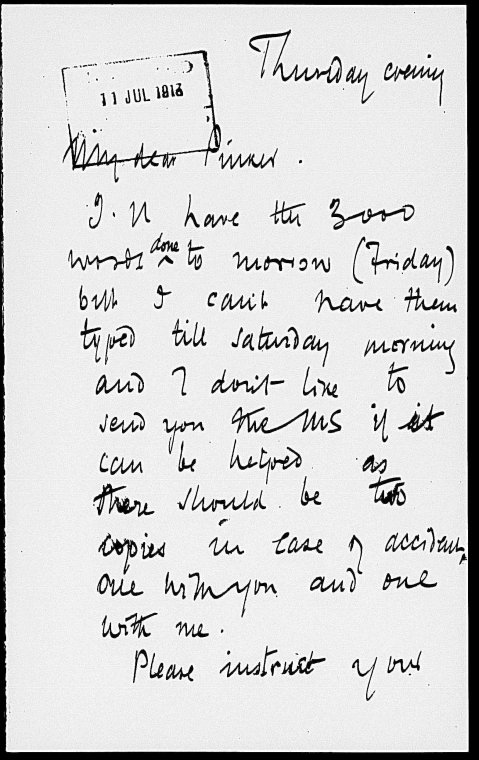 Thursday evening
11 JUL 1913
My dear Pinker.
I'll have the 3000
words done to morrow (Friday)
but I can't have them
typed till Saturday morning
and I don't like to
send you the MS if it
can be helped as
there should be two
copies in case of accident,
one with you and one
with me.
Please instruct your